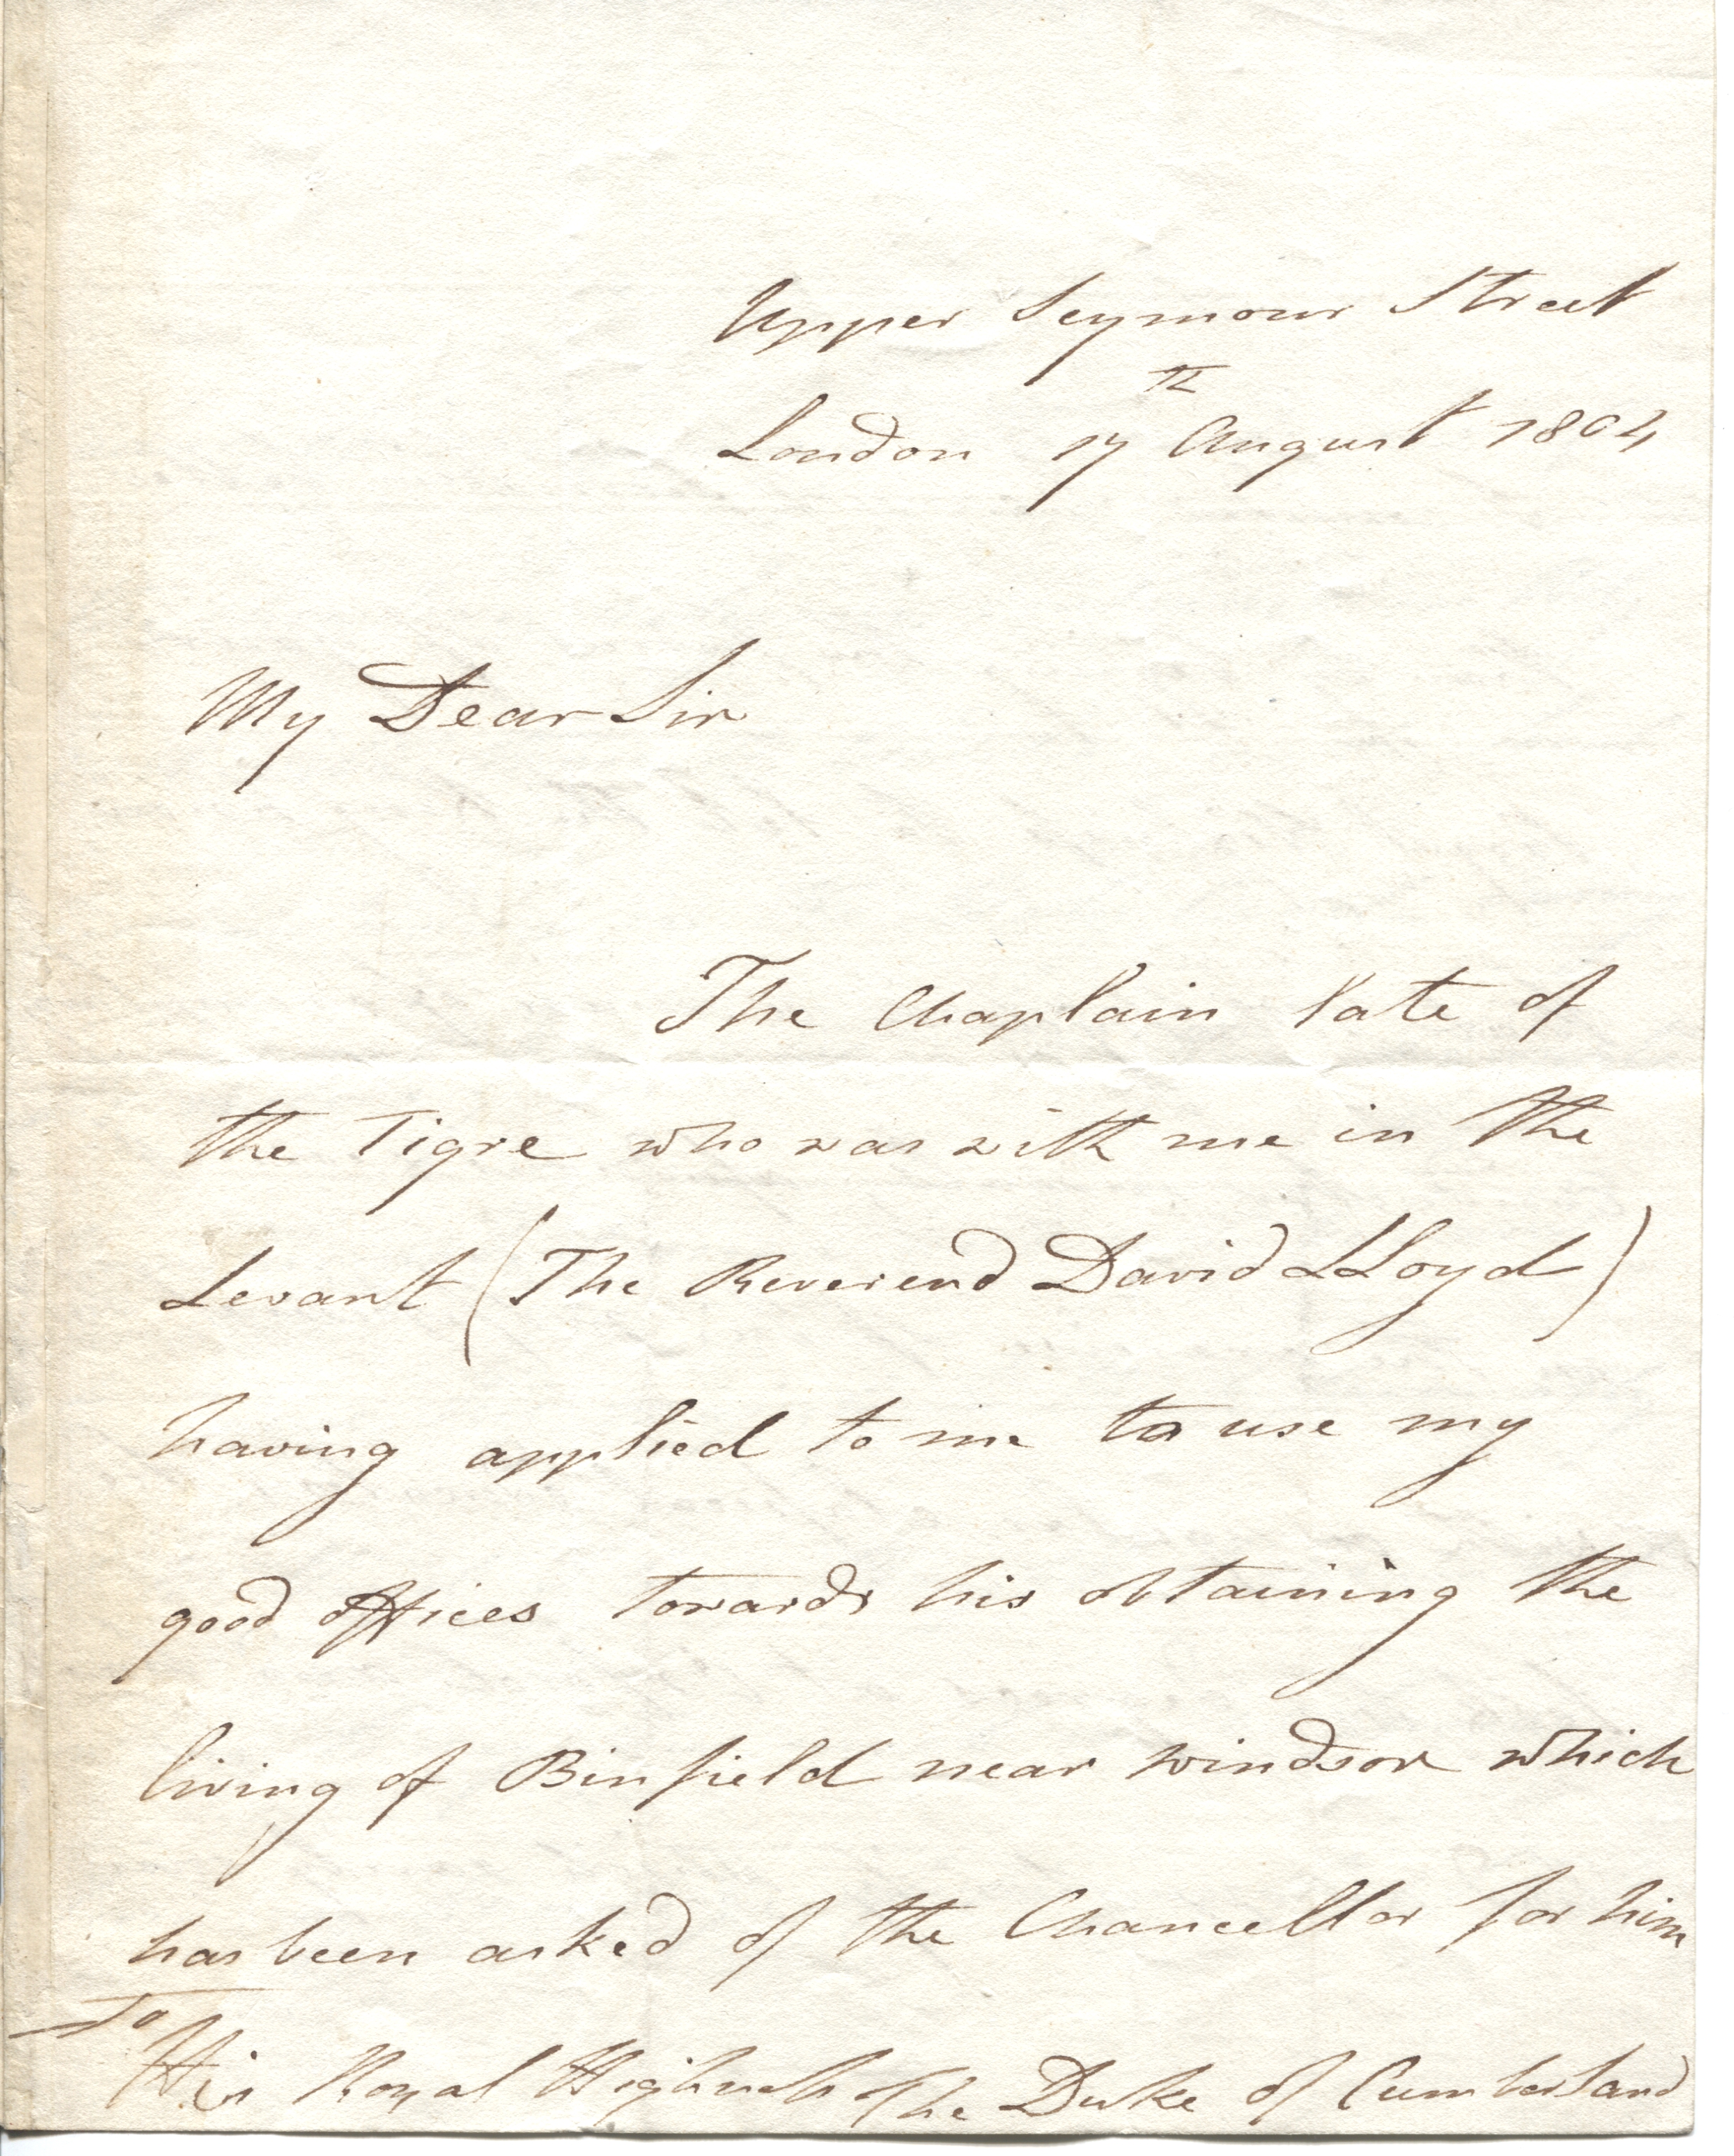 Upper Seymour Street
London 17th August 1804
My Dear Sir
The Chaplain late of
the Tigre who was with me in the
Levant (The Reverend David LLoyd)
having applied to me to use my
good offices towards his obtaining the
living of Binfield near Windsor which
has been asked of the Chancellor for him
To
His Royal Highness The Duke of Cumberland